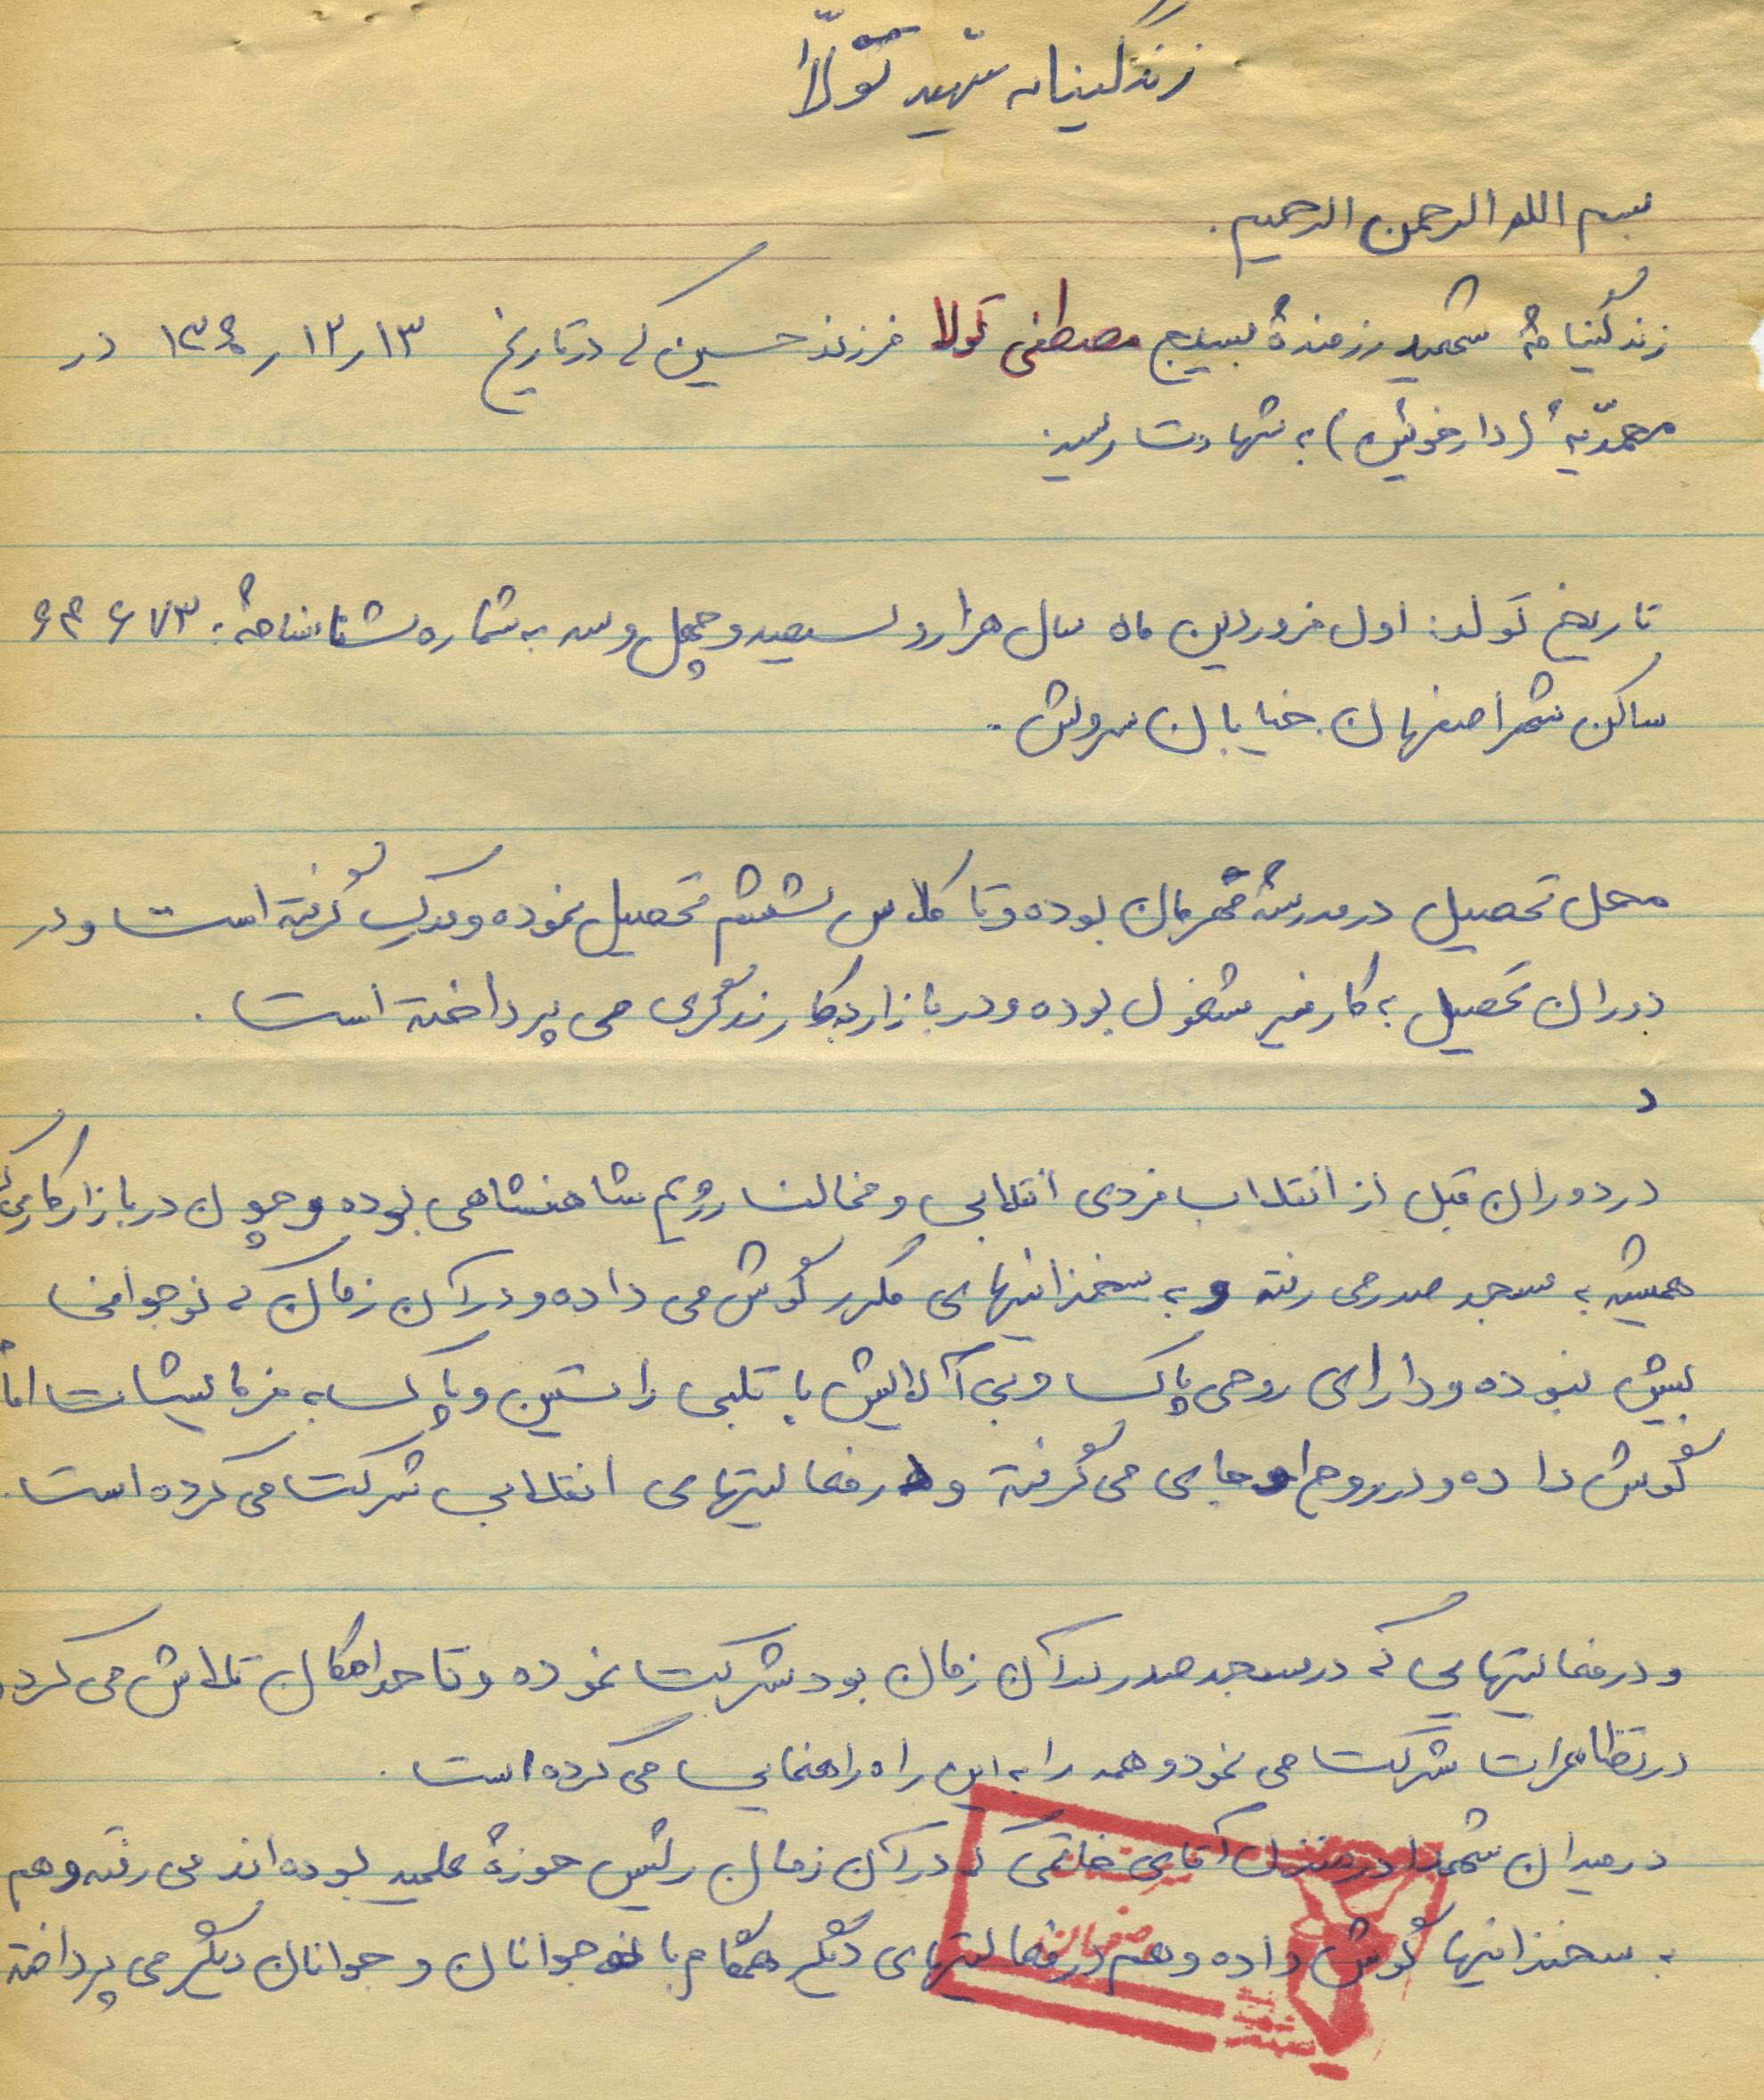 زندگینامه شهید تولّا
بسم الله الرحمن الرحیم.
زندگینامهٔ شهید رزمندهٔ بسیج مصطفی تولا فرزند حسین که در تاریخ ۱۳ر۱۲ر۱۳۶۰ در
محمدّیهٔ (دارخوئین) به شهادت رسید
تاریخ تولد: اول فروردین ماه سال هزار و سیصد و چهل و سه به شماره شناسنامهٔ: ۶۷۳
ساکن شهر اصفهان. خیابان سروش.
محل تحصیل در مدرسهٔ قهرمان بوده و تا کلاس ششم تحصیل نموده و مدرک گرفته است و در
دوران تحصیل به کار نیز مشغول بوده و در بازار بکار زرگری می پرداخته است.
د
در دوران قبل از انقلاب فردی انقلابی و مخالف رژیم شاهنشاهی بوده و چون در بازار کار می
همیشه به مسجد صدر می رفته و به سخنرانیهای مکرر گوش می داده و در آن زمان که نوجوانی
بیش نبوده و دارای روحی پاک و بی آلایش با قلبی راستین و پاک به فرمایشات اما
گوش داده و در روح او جای می گرفته و در فعالیتهای انقلابی شرکت می کرده است.
و در فعالیتهایی که در مسجد صدر در آن زمان بود شرکت نموده و تا حد امکان تلاش می کرد
در تظاهرات شرکت می نمود و همه را به این راه راهنمایی می کرده است.
در میدان شهدا در منزل آقای خاتمی که در آن زمان رئیس حوزهٔ علمیه بوده اند می رفته و هم
به سخنرانیها گوش داده و هم در فعالیتهای دیگر همگام با نوجوانان و جوانان دیگر می پرداخته